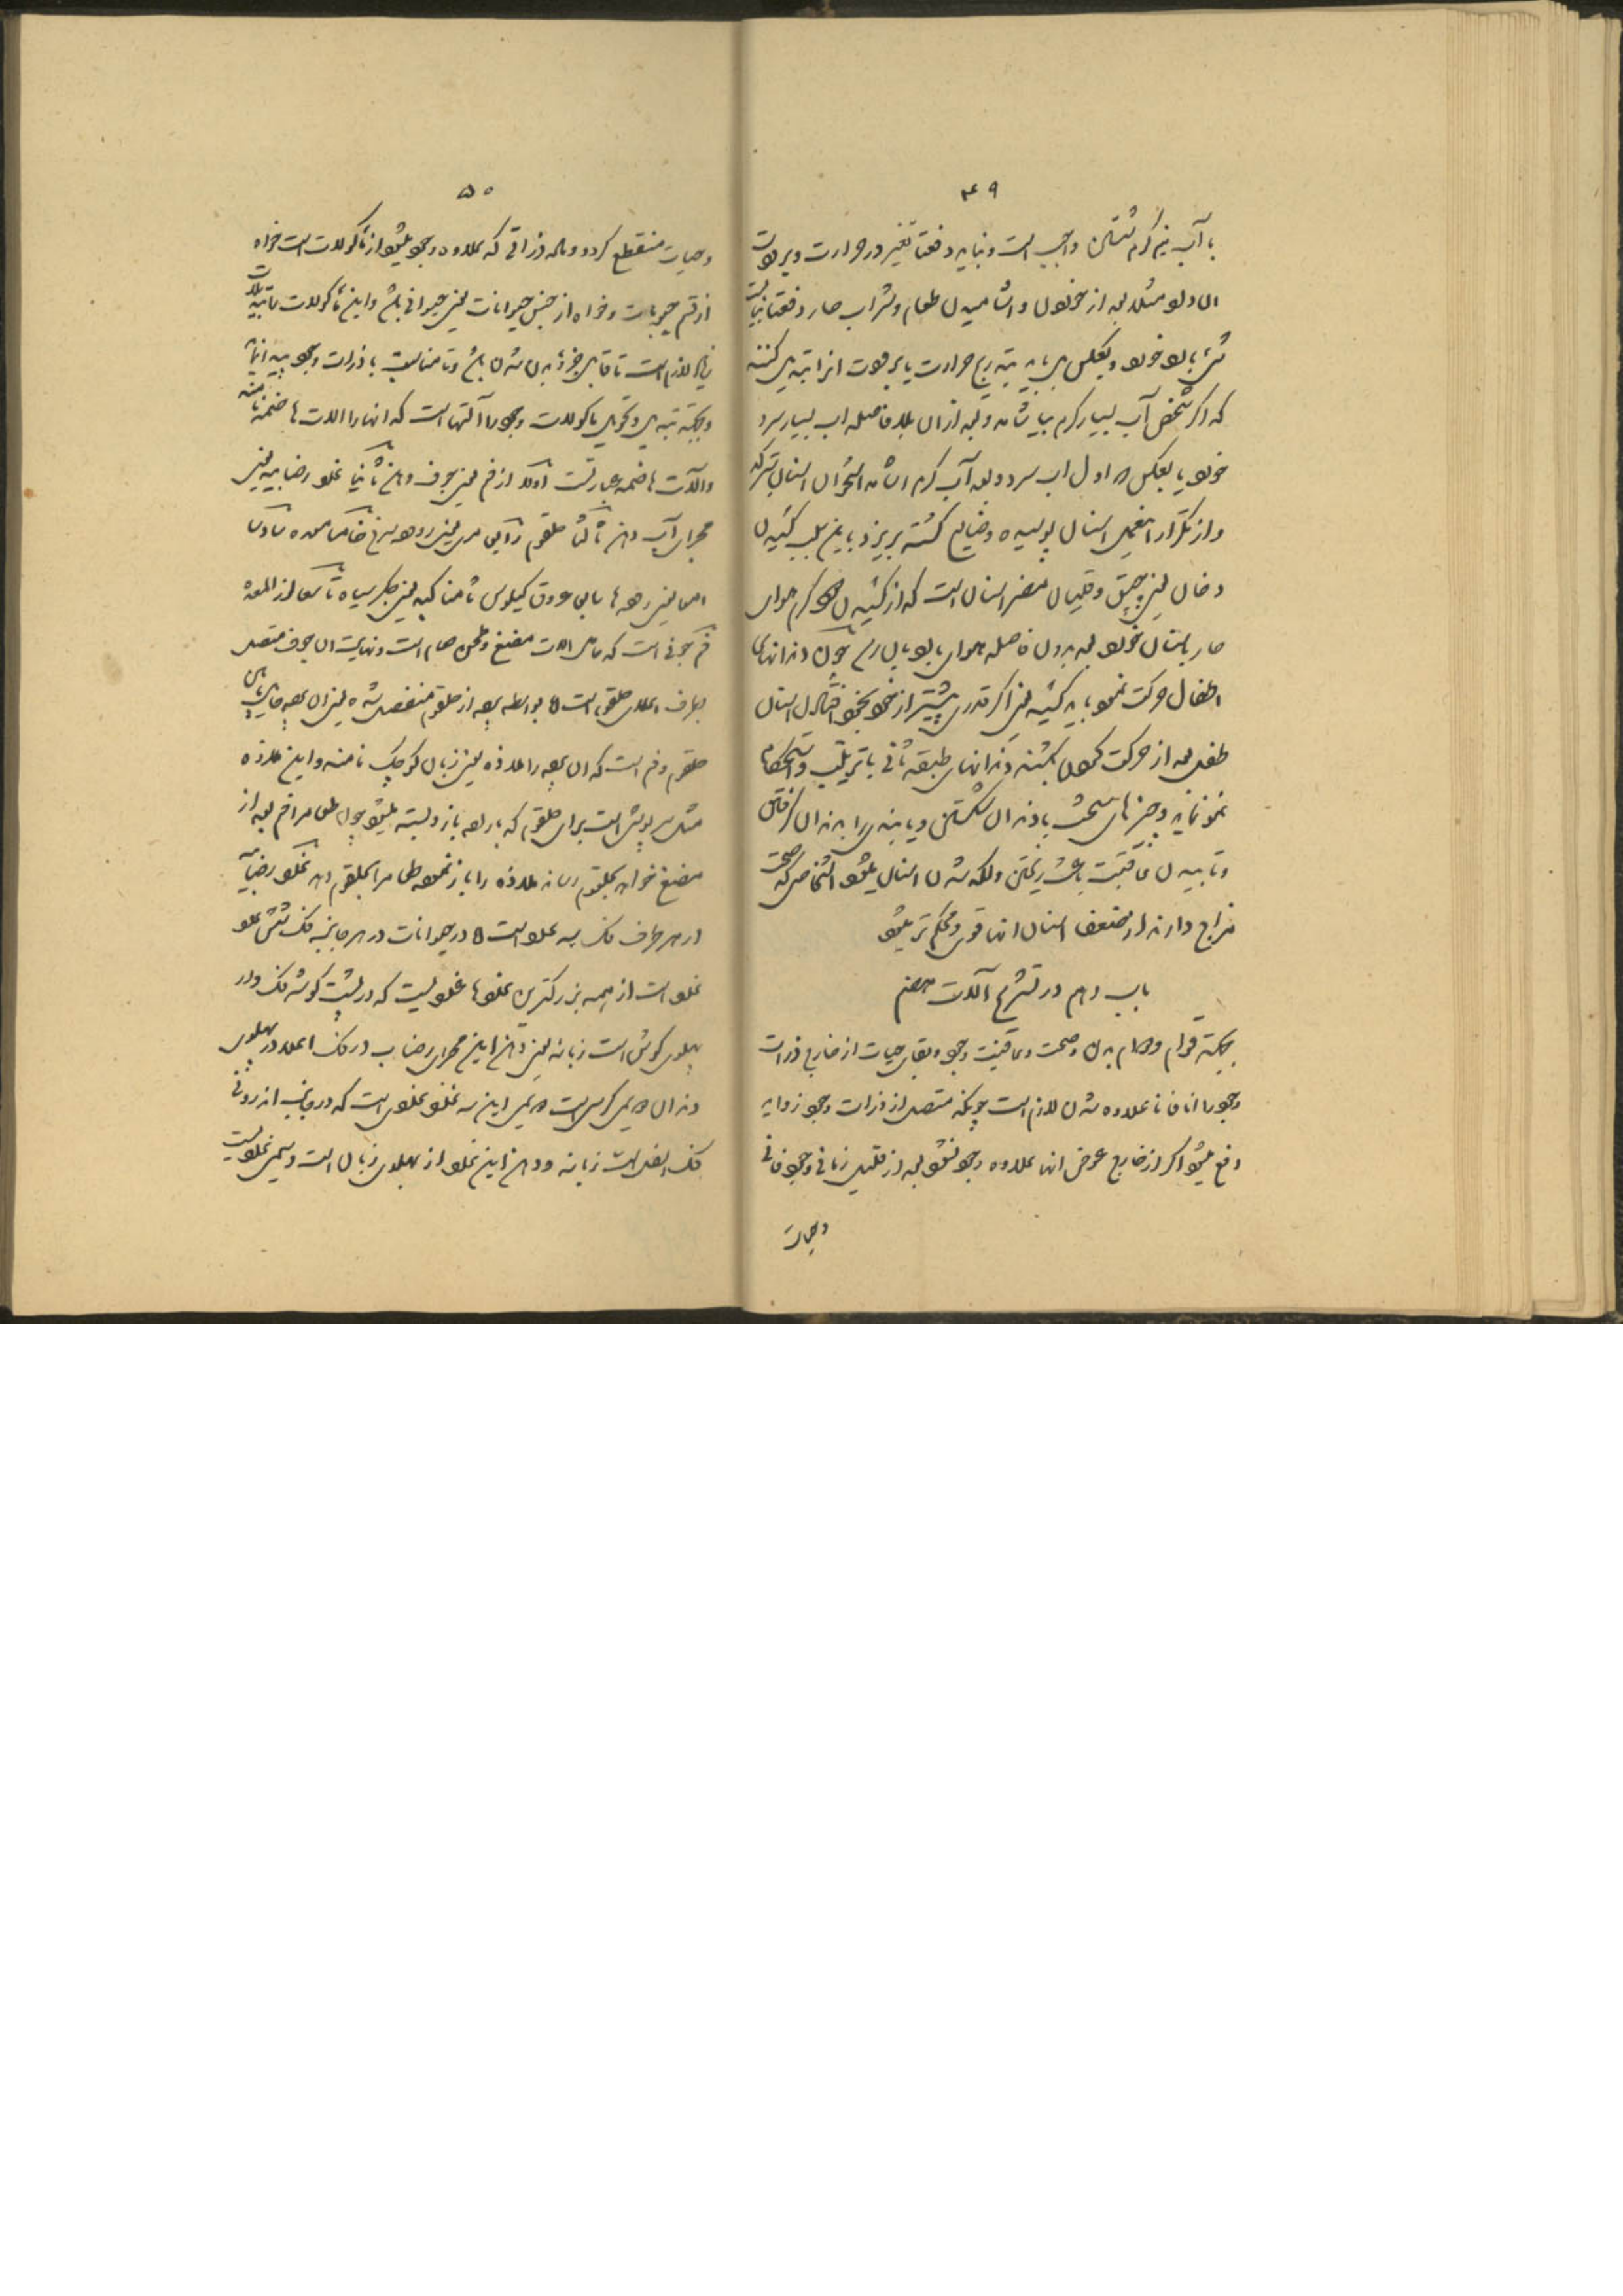 ۴۹
با آب نیم گرم شستن واجب است و نباید دفعتا تغییر در حرارت و برودت
ان داد مثلا بعد از خوردن و اشامیدن طعام و شراب حار دفعتا نبایست
بارد خورد و بعکس باید بتدریج حرارت یا برودت انرا تبدیل کنند
که اگر شخص آب بسیار گرم بیاشامد و بعد از ان بلا فاصله اب بسیار سرد
خورد یا بعکس که اول اب سرد و بعد آب گرم اشامد استخوان اسنان بترکد
و از تکرار اینعمل اسنان پوسیده و ضایع گشته بریزد بعلاوه کشیدن
دخان یعنی چپق و قلیان مضر اسنان است که از کشیدن دود گرم هوای
حار باسنان خورد بعد بدون فاصله هوای بارد بان رسد چون دندانهای
اطفال حرکت نمود باید کشید یعنی اگر قدری پیشتر از خود بخود افتادن اسنان
طفل بعد از حرکت کردن بکشند دندانهای طبقه ثانی با ترتیب و استحکام
نمو نماید و چیزهای سخت با دندان شکستن و یا بند را به دندان گرفتن
و تابیدن عاقبت باعث ریختن و لکه شدن اسنان میشود اشخاصی که صحت
مزاج دارند از مضغ اسنان انها قوی و محکم تر میشود
باب دهم در تشریح آلات هضم
بجهته قوام و دوام بدن و صحت و عافیت وجود و بقای حیات از خارج ذرات
وجود را انا فانا علاوه شدن لازم است چونکه متصل از ذرات وجود زواید
دفع میشود اگر از خارج عوض انها علاوه وجود نشود بعد از قلیل زمانی وجود فانی
و حیات
۵۰
و حیات منقطع گردد و ماده ذراتی که علاوه وجود میشود از ماکولات است خواه
از قسم حبوبات و خواه از جنس حیوانات یعنی حیوانی باشد و این ماکولات را تبدیلات
زیاد لازم است تا قابل جزء بدن شدن باشد و تا مناسب با ذرات وجود بیاید انها
و بجهته تبدیل و تحویل ماکولات وجود را آلتها است که انها را الات هاضمه نامند
و آلات هاضمه عبارتست اولا از فم یعنی جوف دهن ثانیا غدد رضابیه یعنی
مجرای آب دهن ثالثا حلقوم رابعا مری یعنی روده سرخ خامسا معده سادسا
امعا یعنی روده ها سابعا عروق کیلوس ثامنا کبد یعنی جگر سیاه تاسعا لوز المعده
فم جوفی است که حامل الات مضغ و طحن طعام است و نهایت ان جوف متصل
بطرف اعلای حلقوم است که بواسطه پرده از حلقوم منفصل شده یعنی ان پرده مابین
حلقوم و فم است که ان پرده را ملاذه یعنی زبان کوچک نامند و این ملاذه
مثل سرپوش است برای حلقوم که بارادده باز و بسته میشود چون طعام را فم بعد از
مضغ خواهد بحلقوم رساند ملاذه را باز نموده طعام را بحلقوم دهد غدد رضابیه
از هر طرف فک سه عدد است که در حیوانات در هر جانب فک شش عدد
غدد است از همه بزرگترین غددها غده ایست که در پشت گوشه فک و در
پهلوی گوش است زبانه یعنی دهن این مجرای رضاب در فک اعلا در پهلوی
دندان کرسی است و یمین این سه غدد غددی است که در جانب اندرونی
فک اسفل است زبانه و دهن این غدد از پهلوی زبان است و سیمی غددیست